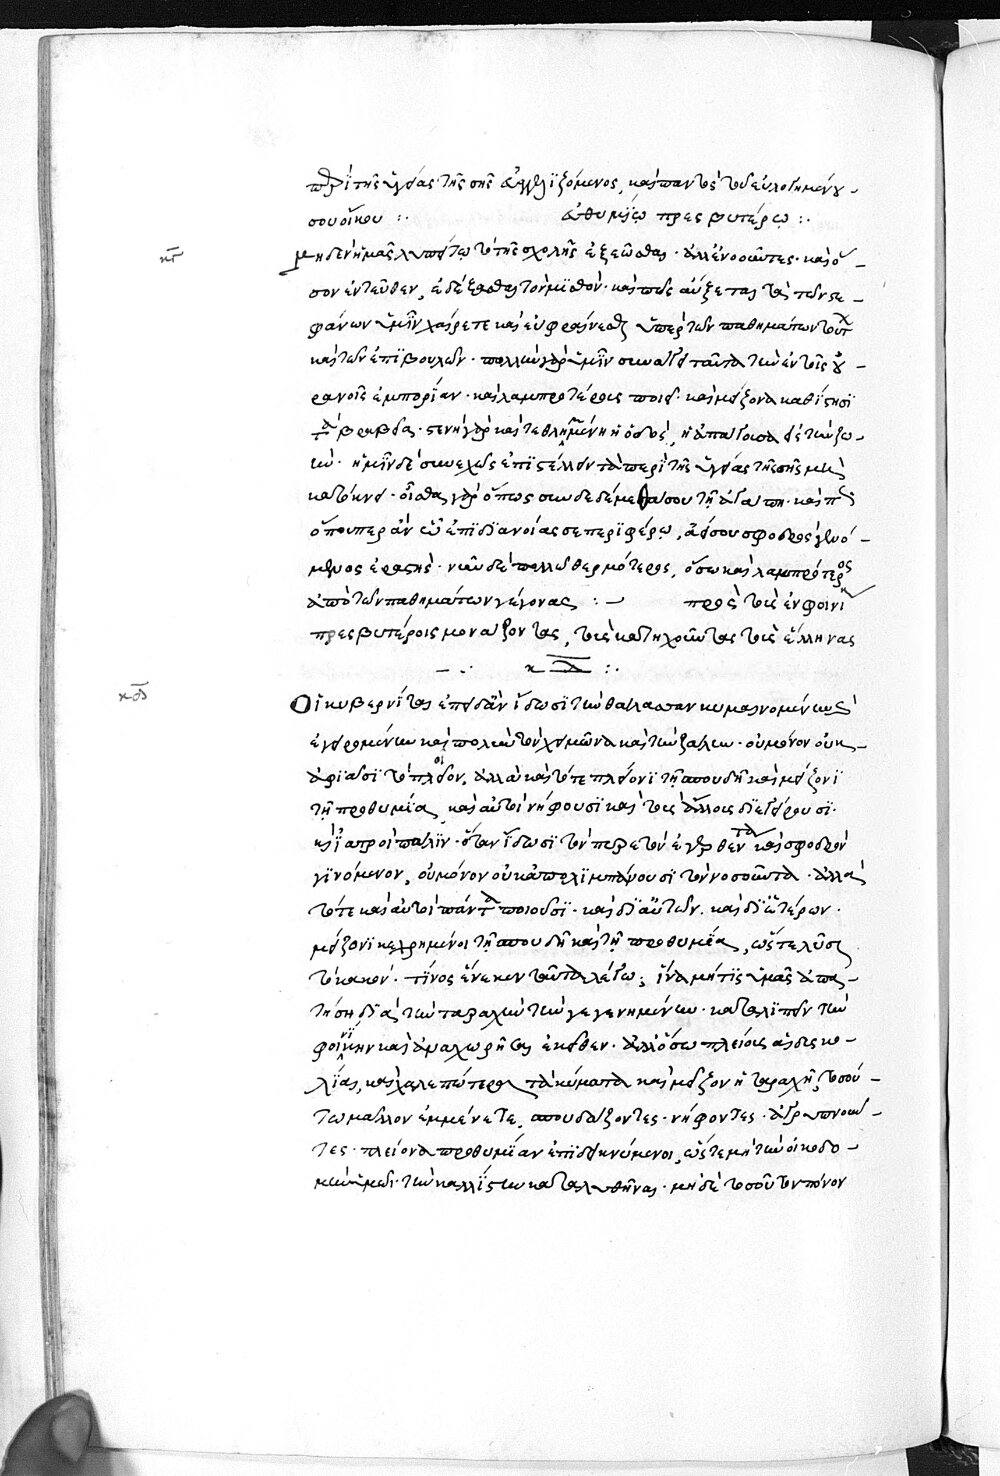 περὶ τῆς ὑγείας τῆς σῆς εὐαγγελιζόμενος, καὶ παντὸς τοῦ εὐλογημένου
σου οἴκου :· εὐθυμίῳ πρεσβυτέρῳ :·
κγ
μηδὲν ἡμᾶς λυπείτω τὸ τῆς σχολῆς ἐξεῶσθαι· ἀλλ' ἐννοοῦντες· καὶ ὅ-
σον ἐντεῦθεν, ἐδέξασθαι τὸν μισθόν· καὶ πῶς αὔξεται τὰ τῶν στε-
φάνων ὑμῖν χαίρετε καὶ εὐφραίνεσθε ὑπὲρ τῶν παθημάτων τούτων
καὶ τῶν ἐπιβουλῶν· πολλὴν γὰρ ὑμῖν συνάγει ταῦτα τὴν ἐν τοῖς οὐ-
ρανοῖς ἐμπορίαν· καὶ λαμπροτέρους ποιεῖ· καὶ μείζονα καθίστησι
τὰ βραβεῖα· στενὴ γὰρ καὶ τεθλιμμένη ἡ ὁδὸς, ἡ ἀπάγουσα εἰς τὴν ζω-
ήν· ἡμῖν δὲ συνεχῶς ἐπιστέλλειν τὰ περὶ τῆς ὑγείας τῆς σῆς μὴ
κατόκνει· οἶσθα γὰρ ὅπως συνδεδέμεθά σου τῇ ἀγάπῃ· καὶ
ὅπουπερ ἂν ὦ ἐπὶ διανοίας σε περιφέρω, ἀεί σου σφοδρὸς γενό-
μενος ἐραστής· νῦν δὲ πολλῷ θερμότερος, ὅσῳ καὶ λαμπρότερος
ἀπὸ τῶν παθημάτων γέγονας :– πρὸς τοὺς ἐν φοινίκῃ
πρεσβυτέροις μονάζοντας, τοὺς κατηχοῦντας τοὺς ἕλληνας
κδ :·
κδ
Οἱ κυβερνῆται ἐπειδὰν ἴδωσι τὴν θάλασσαν κυμαινομένην καὶ
ἐγειρομένην καὶ πολὺν τὸν χειμῶνα καὶ τὴν ζάλην· οὐ μόνον οὐκ
ἀφιᾶσι τὸ πλοῖον, ἀλλὰ καὶ τότε πλείονι τῇ σπουδῇ καὶ μείζονι
τῇ προθυμίᾳ, καὶ αὐτοὶ νήφουσι καὶ τοὺς ἄλλους διεγείρουσι·
καὶ ἰατροὶ πάλιν· ὅταν ἴδωσι τὸν πυρετὸν ἐγερθέντα καὶ σφοδρὸν
γινόμενον, οὐ μόνον οὐκ ἀπολιμπάνουσι τὸν νοσοῦντα· ἀλλὰ
τότε καὶ αὐτοὶ πάντα ποιοῦσι· καὶ δι' αὐτῶν. καὶ δι' ἑτέρων·
μείζονι κεχρημένοι τῇ σπουδῇ καὶ τῇ προθυμίᾳ, ὥστε λῦσαι
τὸ κακόν· τίνος ἕνεκεν ταῦτα λέγω; ἵνα μή τις ὑμᾶς ἀπα-
τήσῃ διὰ τὴν ταραχὴν τὴν γεγενημένην· καταλιπεῖν τὴν
φοινίκην καὶ ἀναχωρῆσαι ἐκεῖθεν· ἀλλ' ὅσῳ πλείους αἱ δυσκο-
λίαι, καὶ χαλεπώτερα τὰ κύματα καὶ μείζων ἡ ταραχὴ, τοσού-
τῳ μᾶλλον ἐμμένετε, σπουδάζοντες· νήφοντες· ἀγρυπνοῦν-
τες· πλείονα προθυμίαν ἐπιδεικνύμενοι, ὥστε μὴ τὴν οἰκοδο-
μὴν ὑμῶν τὴν καλλίστην καταλυθῆναι· μηδὲ τοσοῦτον πόνον